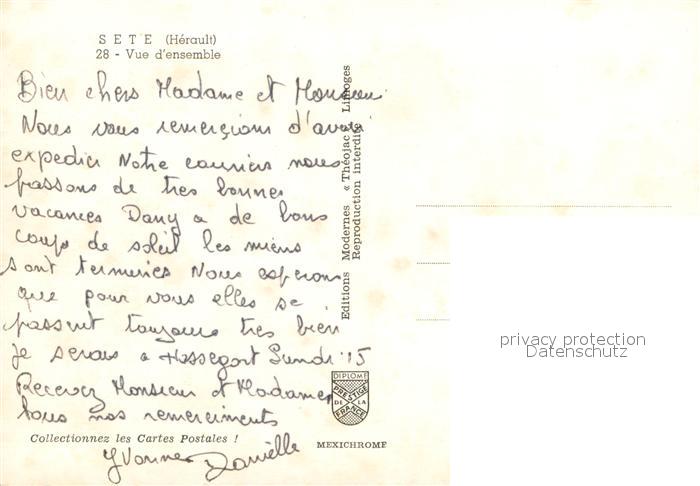 SETE (Hérault)
28 - Vue d'ensemble
Bien chers Madame et Monsieur
Nous vous remerçions d'avoir
expedier Notre courriers nous
passons de tres bonnes
vacances Dany a de bons
coups de soleil les miens
sont terminées Nous esperons
que pour vous elles se
passent toujours tres bien
je serais a Hossegort Lundi 15
Recevez Monsieur et Madame
tous nos remerciments
Yvonne Danielle
Collectionnez les Cartes Postales !
Editions Modernes « Théojac » Limoges
Reproduction interdite
DIPLOME
PRESTIGE
DE LA
FRANCE
MEXICHROME
privacy protection
Datenschutz